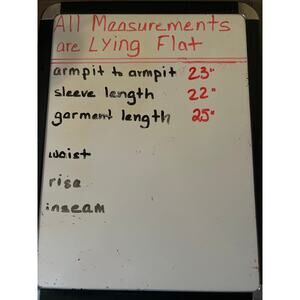 All Measurements
are Lying Flat
armpit to armpit 23"
sleeve length 22"
garment length 25"
waist
rise
inseam